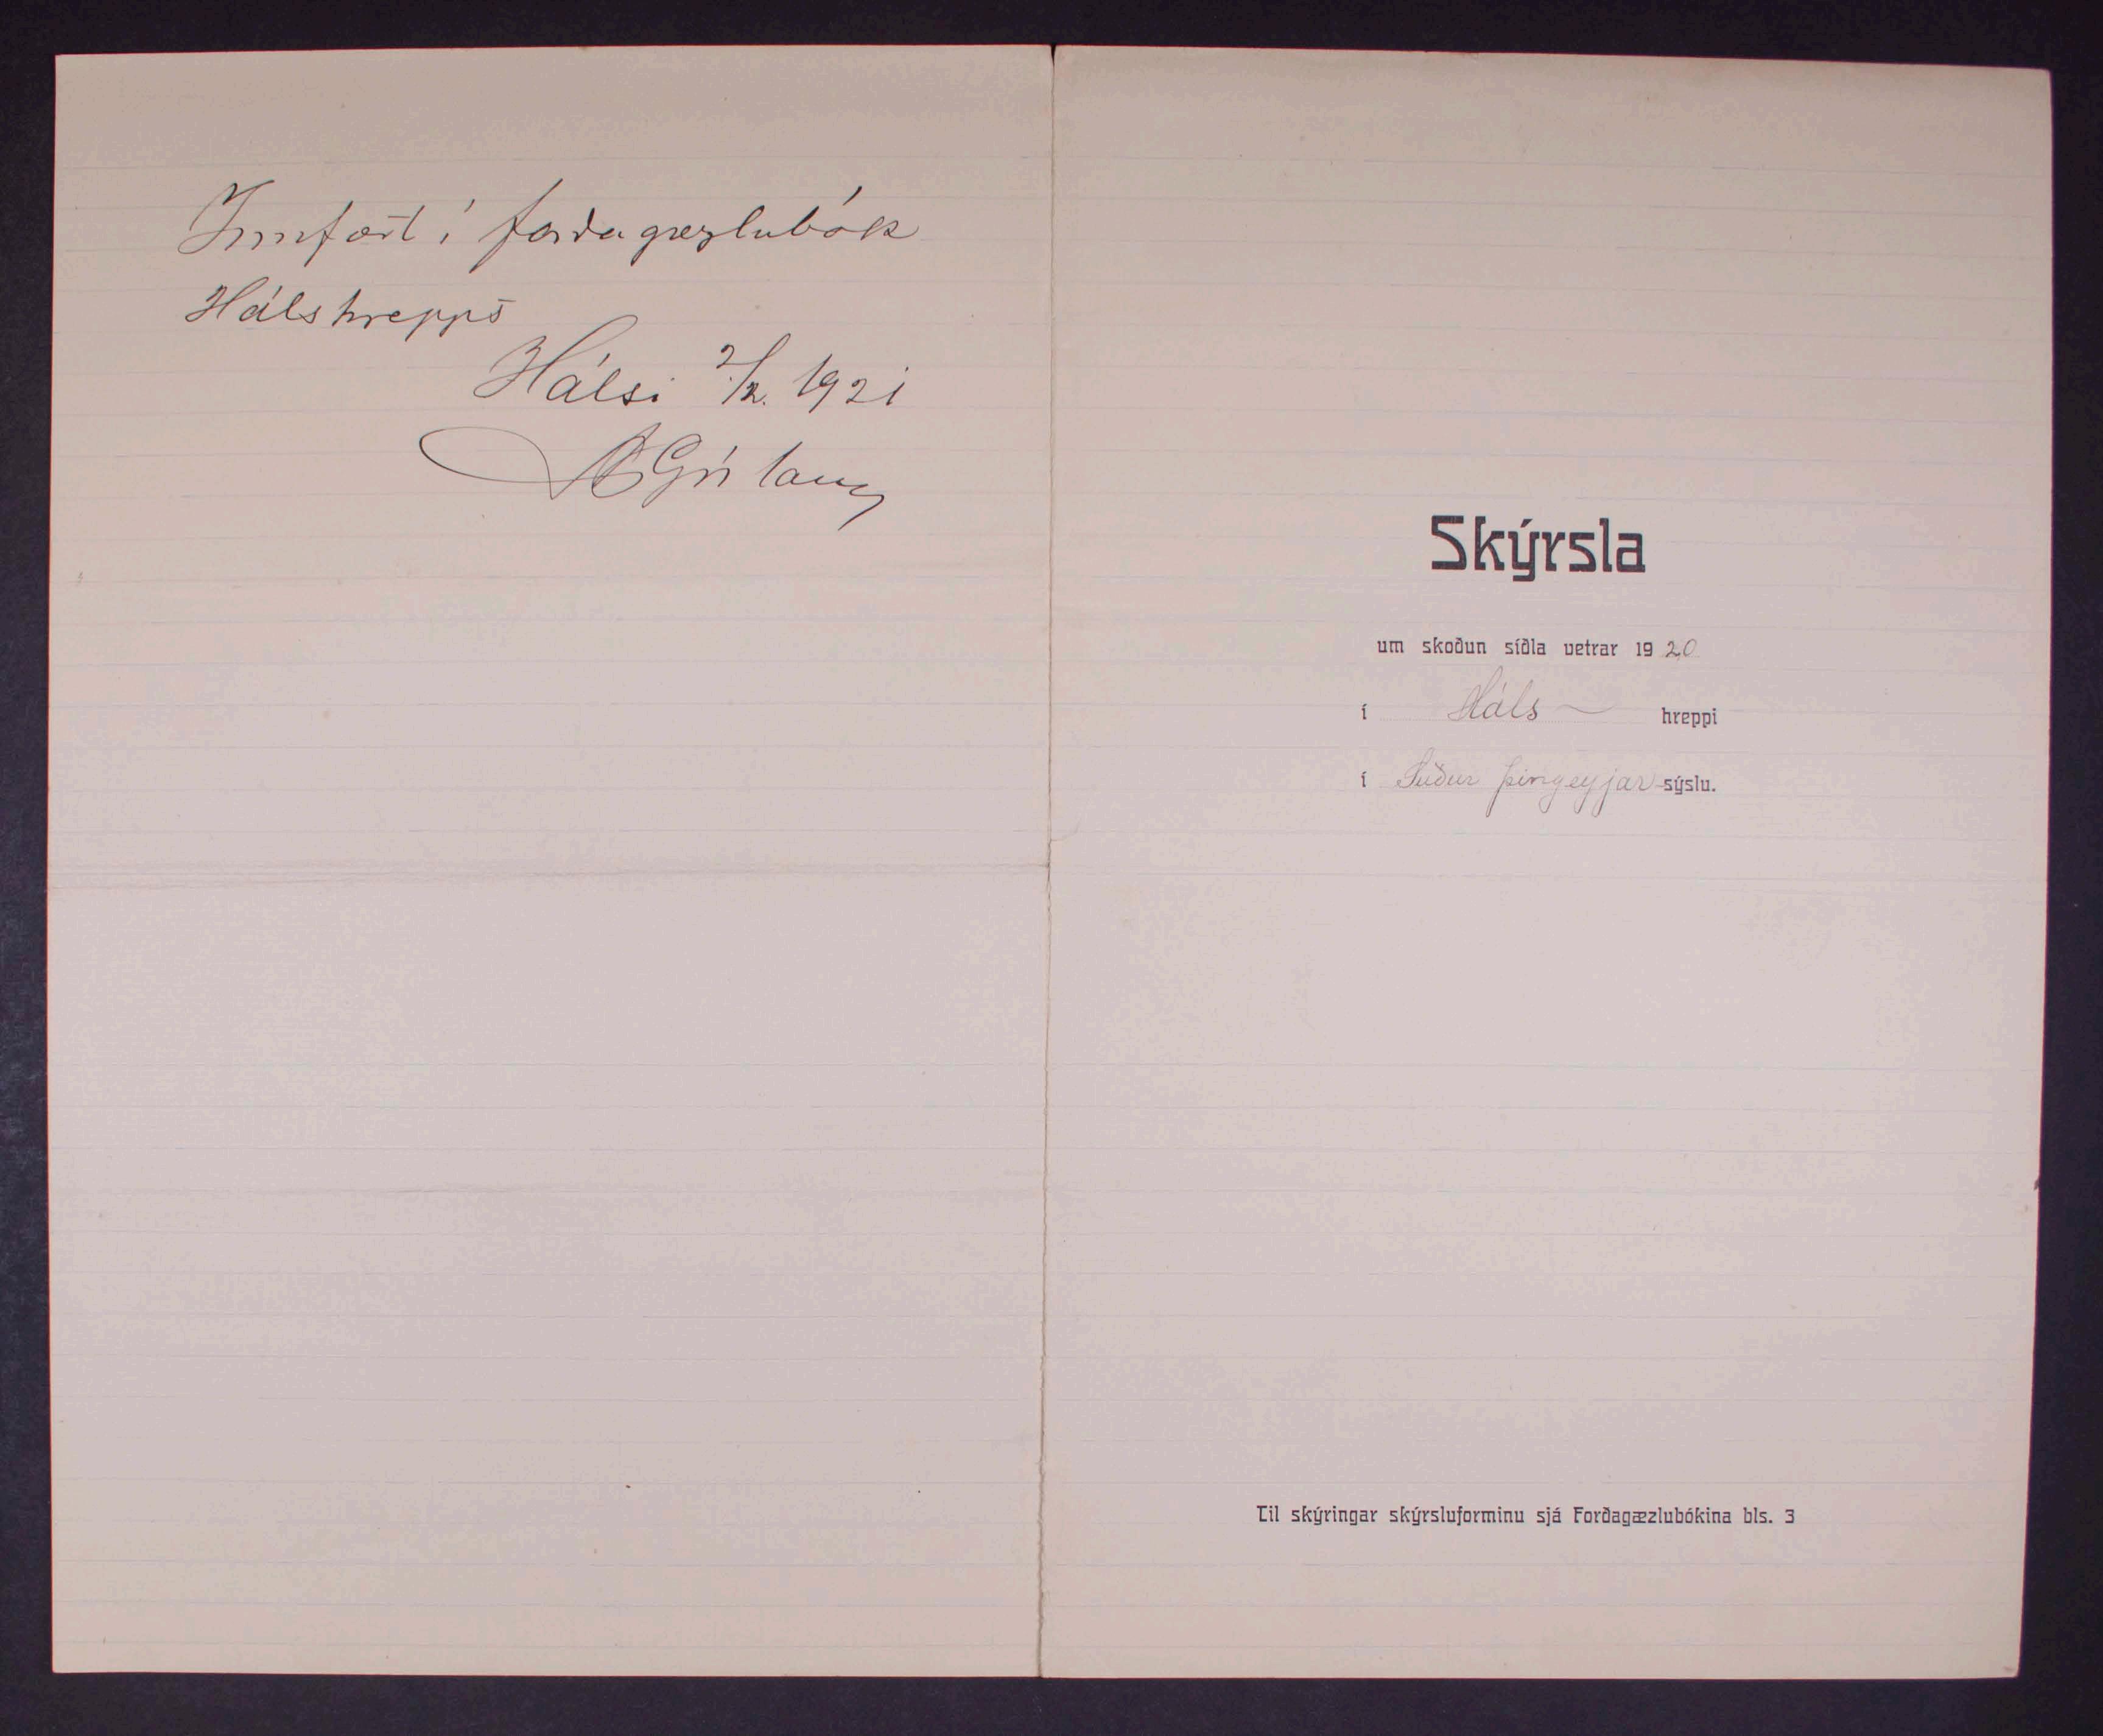 Innfært í forðagæzlubók
Hálshrepps
Hálsi 2/2. 1921
Skýrsla
um skoðun síðla vetrar 1920
í Háls hreppi
í Suður Þingeyjar-sýslu.
Til skýringar skýrsluforminu sjá Forðagæzlubókina bls. 3